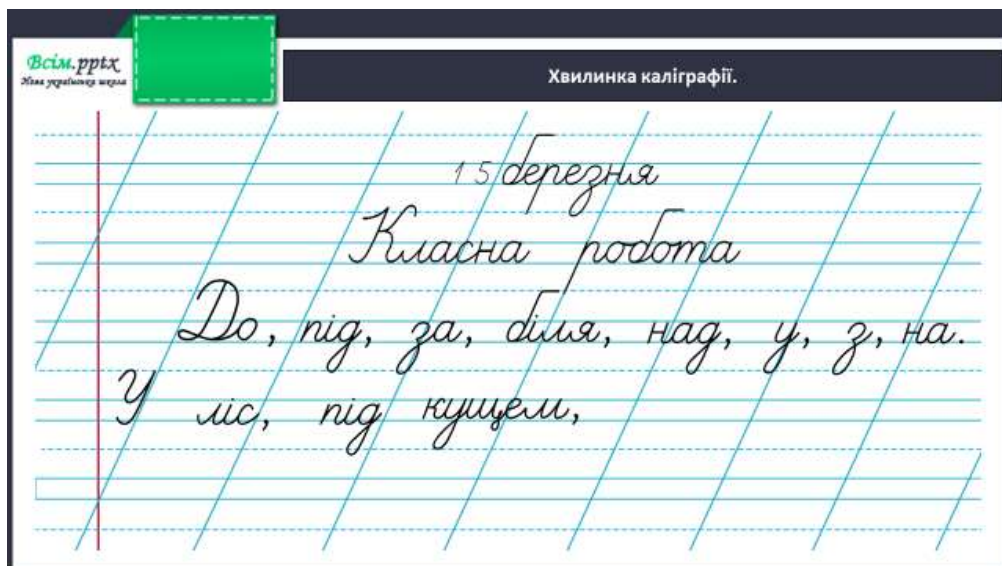 Всім.pptx
Нова українська школа
Хвилинка каліграфії.
15 березня
Класна робота
До, під, за, біля, над, у, з, на.
У ліс, під кущем,